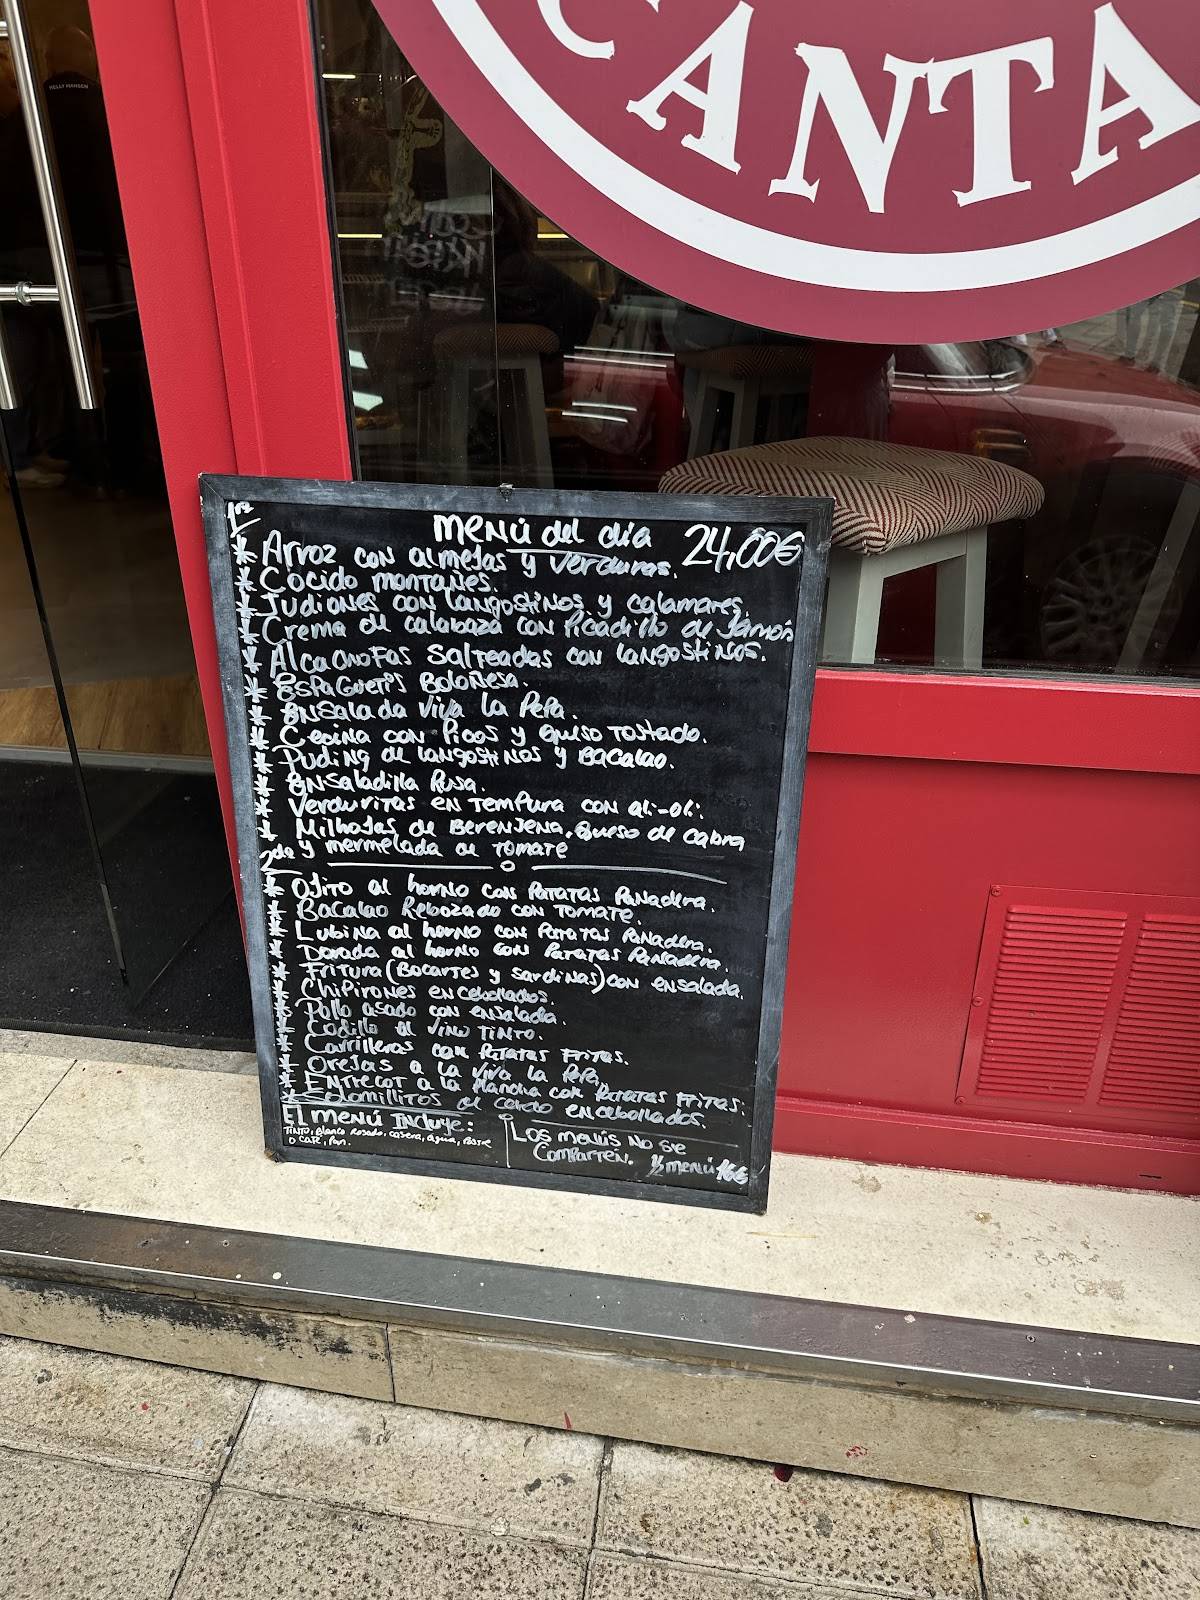 CANTA
HELLY HANSEN
1os
MENÚ del día 24,00€
* Arroz con almejas y verduras.
* Cocido montañes.
* Judiones con langostinos y calamares.
* Crema de calabaza con Picadillo de Jamón
* Alcachofas salteadas con langostinos.
* Espaguetis Boloñesa.
* Ensalada Viva la Pepa.
* Cecina con Picos y Queso Tostado.
* Puding de langostinos y Bacalao.
* Ensaladilla Rusa.
* Verduritas en Tempura con ali-oli.
* Milhojas de Berenjena, Queso de cabra
y mermelada de Tomate
2dos
* Ojito al horno con Patatas Panadera.
* Bacalao Rebozado con Tomate.
* Lubina al horno con Patatas Panadera.
* Dorada al horno con Patatas Panadera.
* Fritura (Bocartes y sardinas) con ensalada.
* Chipirones encebollados.
* Pollo asado con ensalada.
* Codillo al vino Tinto.
* Carrilleras con Patatas Fritas.
* Orejas a la Viva la Pepa.
* Entrecot a la Plancha con Patatas Fritas.
* Solomillitos de Cerdo encebollados.
El menú Incluye:
Tinto, Blanco, Rosado, casera, agua, Postre
o café, Pan.
Los menús No se
Comparten. 1/2 menú 16€